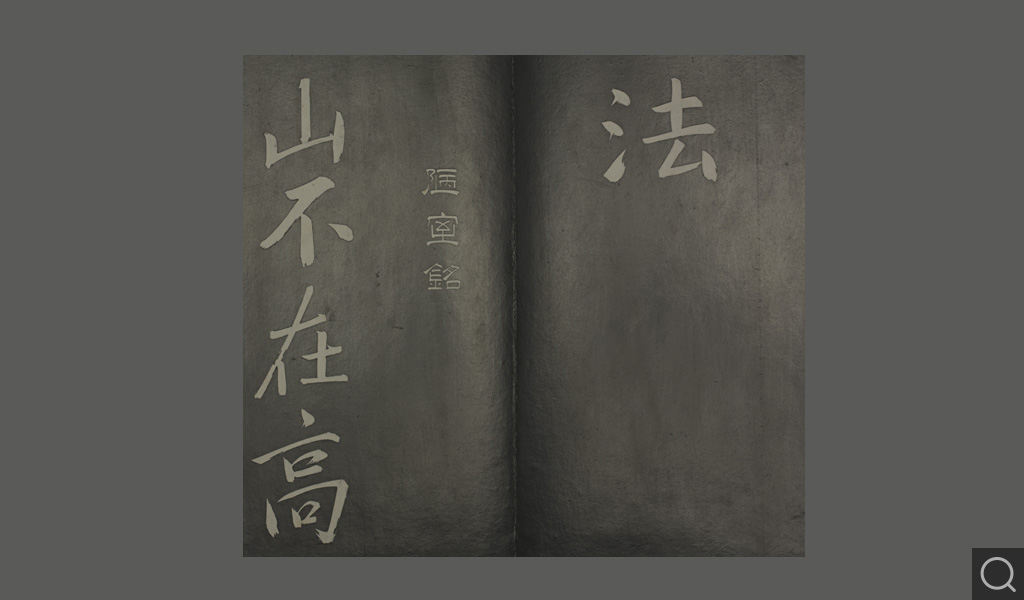 法
陋室銘
山不在高